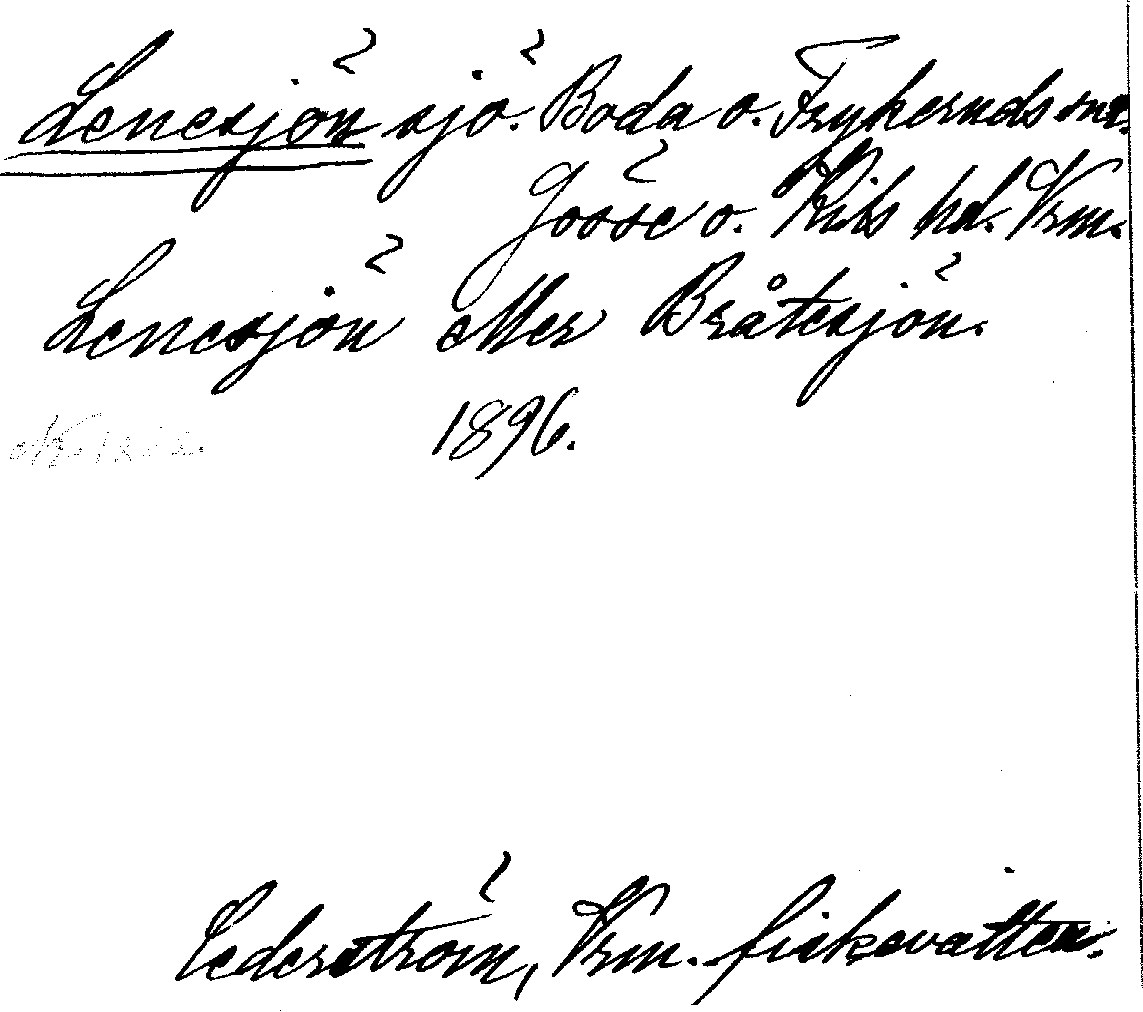 Lenesjön sjö. Boda o. Frykeruds snr.
Jösse o. Kils hd. Vrm.
Lenesjön eller Bråtesjön.
1896.
Cederström, Vrm. fiskevatten.